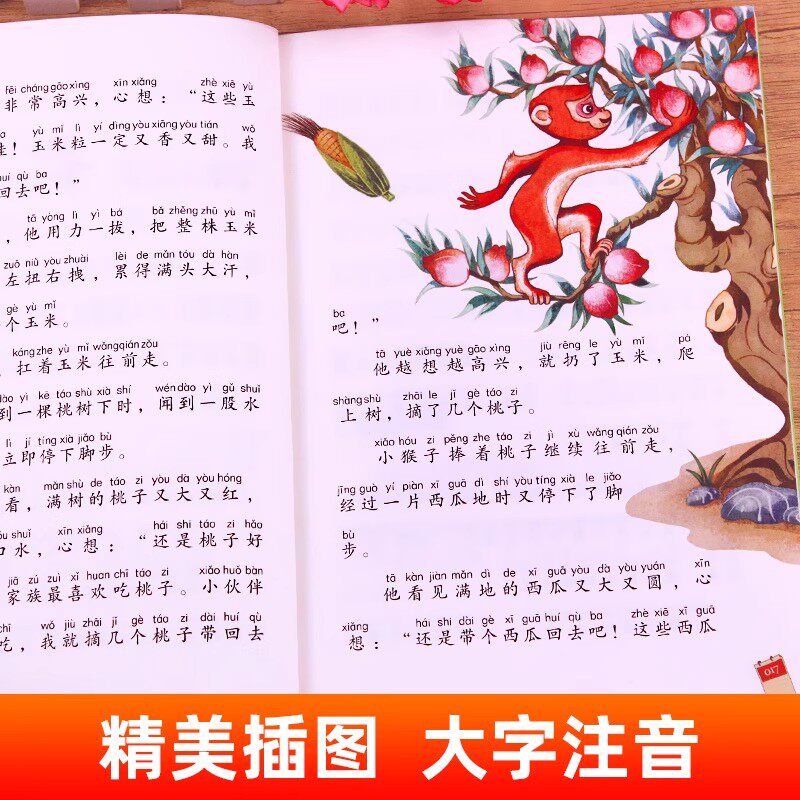 fēi cháng gāo xìng xīn xiǎng zhè xiē yù
非常高兴，心想：“这些玉
yù mǐ lì yí dìng yòu xiāng yòu tián wǒ
！玉米粒一定又香又甜。我
huí qù ba
回去吧！”
tā yòng lì yì bá bǎ zhěng zhū yù mǐ
，他用力一拔，把整株玉米
zuǒ niǔ yòu zhuài lèi de mǎn tóu dà hàn
左扭右拽，累得满头大汗，
gè yù mǐ
个玉米。
káng zhe yù mǐ wǎng qián zǒu
，扛着玉米往前走。
dào yì kē táo shù xià shí wén dào yì gǔ shuǐ
到一棵桃树下时，闻到一股水
lì jí tíng xià jiǎo bù
立即停下脚步。
kàn mǎn shù de táo zi yòu dà yòu hóng
看，满树的桃子又大又红，
shuǐ xīn xiǎng hái shi táo zi hǎo
口水，心想：“还是桃子好
jiā zú zuì xǐ huan chī táo zi xiǎo huǒ bàn
家族最喜欢吃桃子。小伙伴
chī wǒ jiù zhāi jǐ gè táo zi dài huí qù
吃，我就摘几个桃子带回去
ba
吧！”
tā yuè xiǎng yuè gāo xìng jiù rēng le yù mǐ pá
他越想越高兴，就扔了玉米，爬
shàng shù zhāi le jǐ gè táo zi
上树，摘了几个桃子。
xiǎo hóu zi pěng zhe táo zi jì xù wǎng qián zǒu
小猴子捧着桃子继续往前走，
jīng guò yí piàn xī guā dì shí yòu tíng xià le jiǎo
经过一片西瓜地时又停下了脚
bù
步。
tā kàn jiàn mǎn dì de xī guā yòu dà yòu yuán xīn
他看见满地的西瓜又大又圆，心
xiǎng hái shi dài gè xī guā huí qù ba zhè xiē xī guā
想：“还是带个西瓜回去吧！这些西瓜
017
精美插图 大字注音